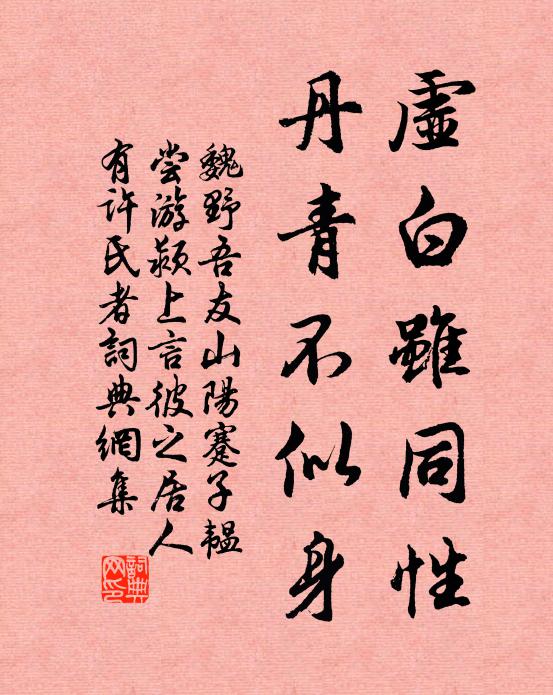 虛白雖同性
丹青不似身
魏野吾友山陽蹇子韞
嘗游潁上言彼之居人
有許氏者詞典網集
詞典
网印